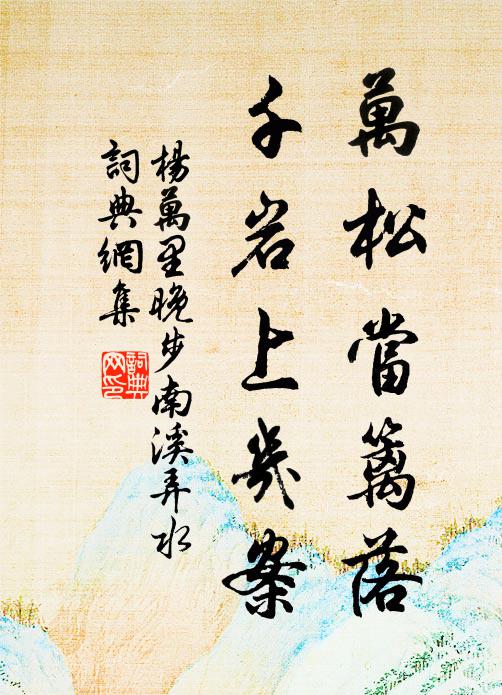 萬松當籬落
千岩上幾案
楊萬里晚步南溪弄水
詞典網集
詞典
网印